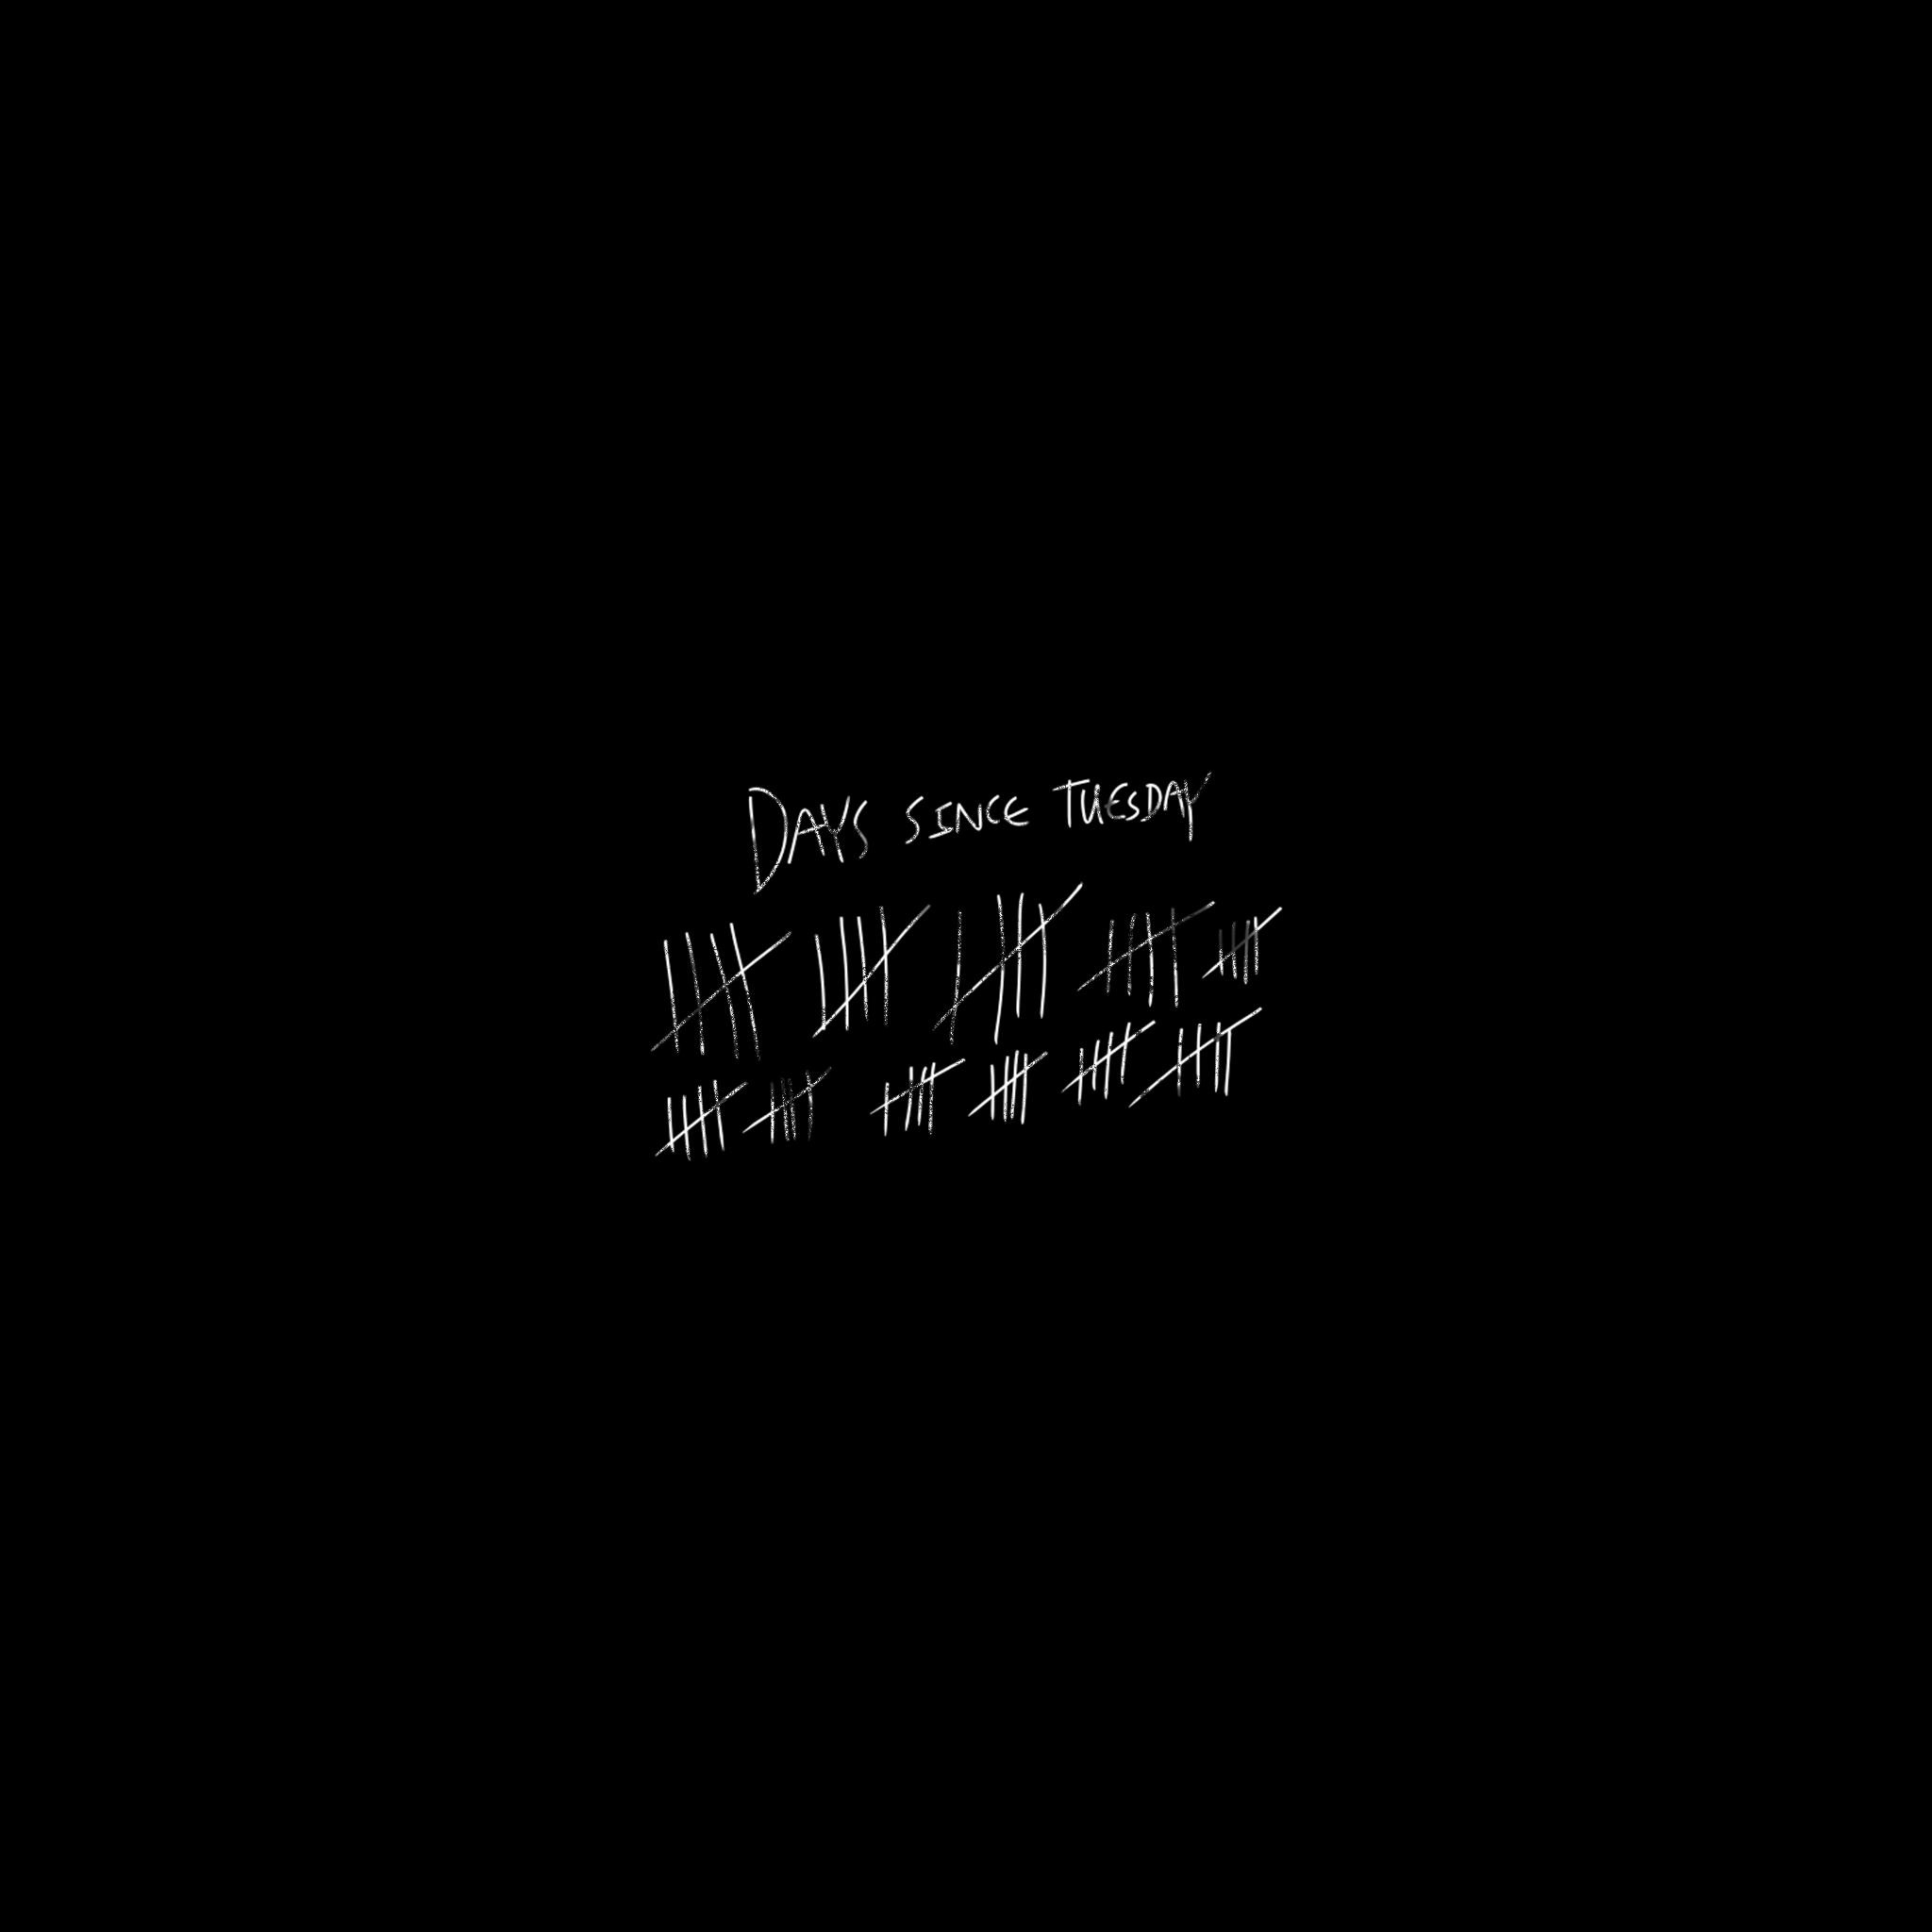 DAYS SINCE TUESDAY